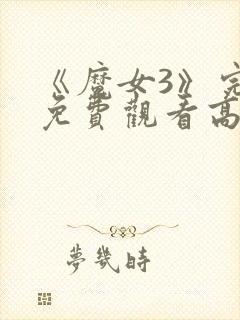 《魔女3》完
免費觀看高
夢幾時